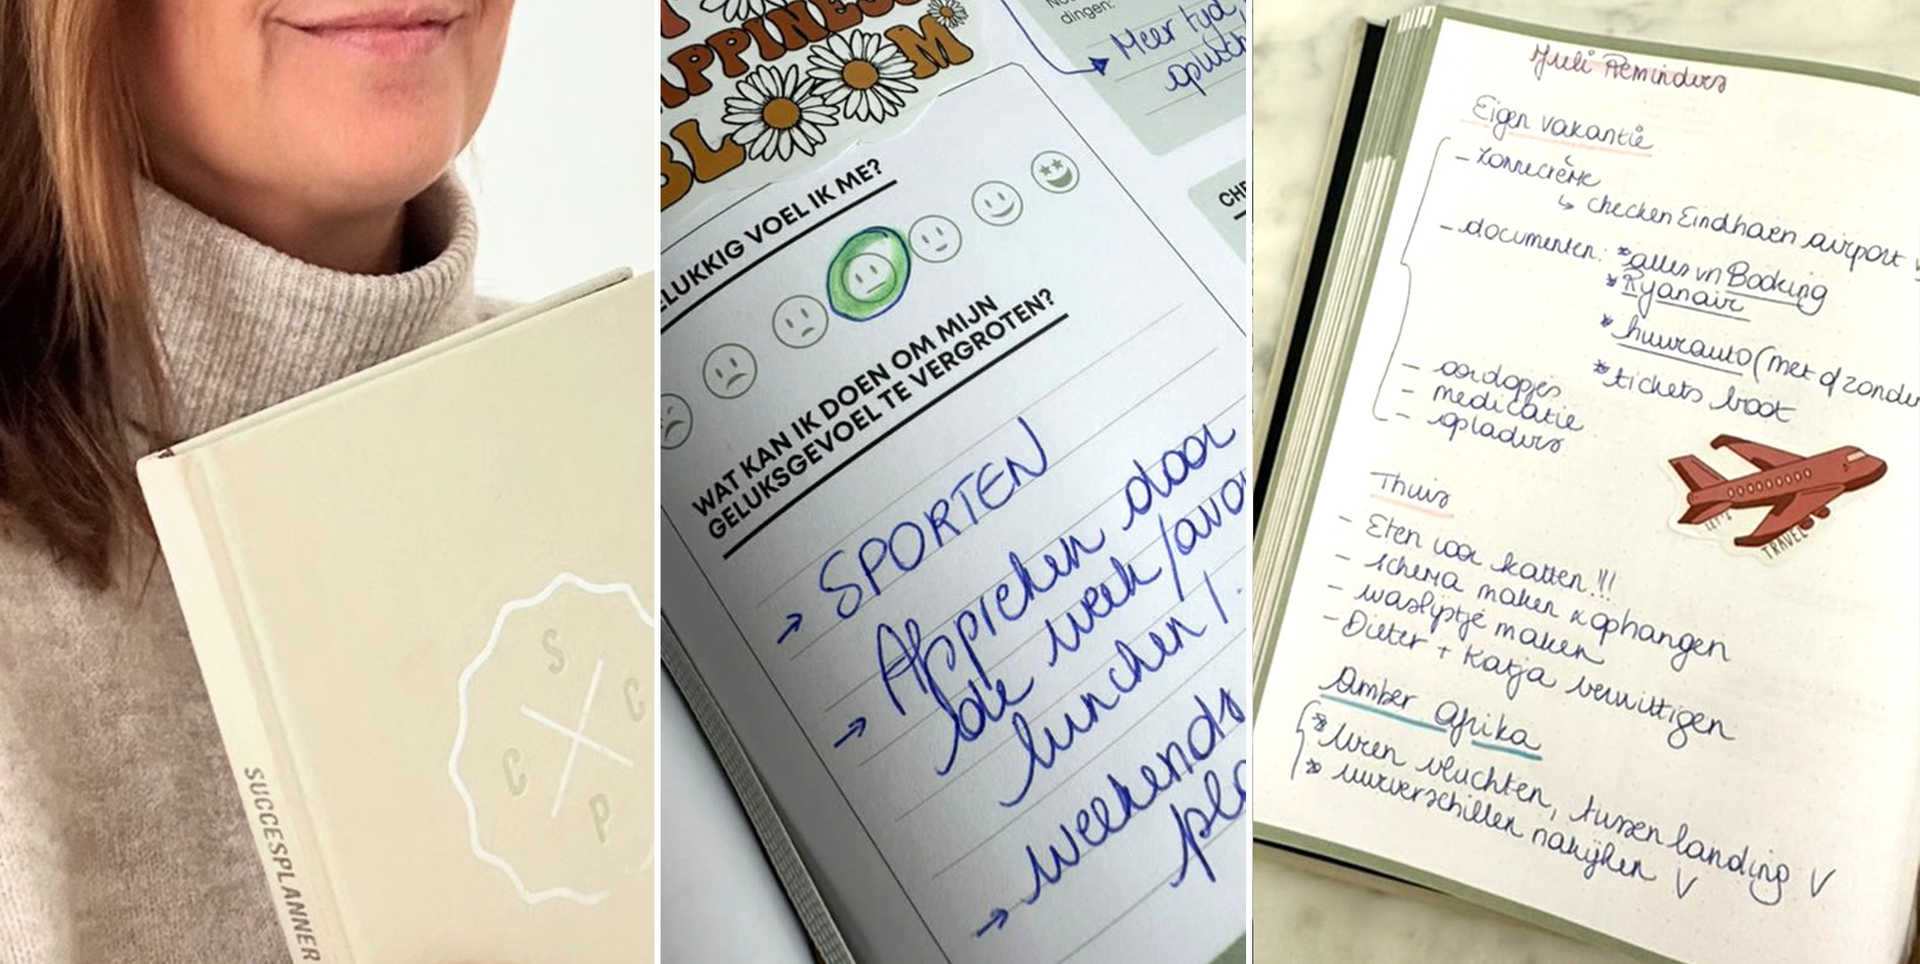 S
C
C
P
SUCCESPLANNER
APPINESS
BLOOM
dingen:
Meer tyd
ELUKKIG VOEL IK ME?
WAT KAN IK DOEN OM MIJN
GELUKSGEVOEL TE VERGROTEN?
→ SPORTEN
→ Afspreken door
de week /avo
lunchen !
→ weekends
pla
Juli Reminders
Eigen vakantie
- Zonnecrème
↳ checken Eindhoven airport
- documenten: * alles vn Booking
* Ryanair
* huurauto (met of zonder
* tickets boot
- oordopjes
- medicatie
- opladers
LET'S
TRAVEL
Thuis
- Eten voor katten !!!
- schema maken & ophangen
- waslijstje maken
- Dieter + Katja verwittigen
Amber Afrika
* Uren vluchten, tussenlanding V
* uurverschillen nakijken V